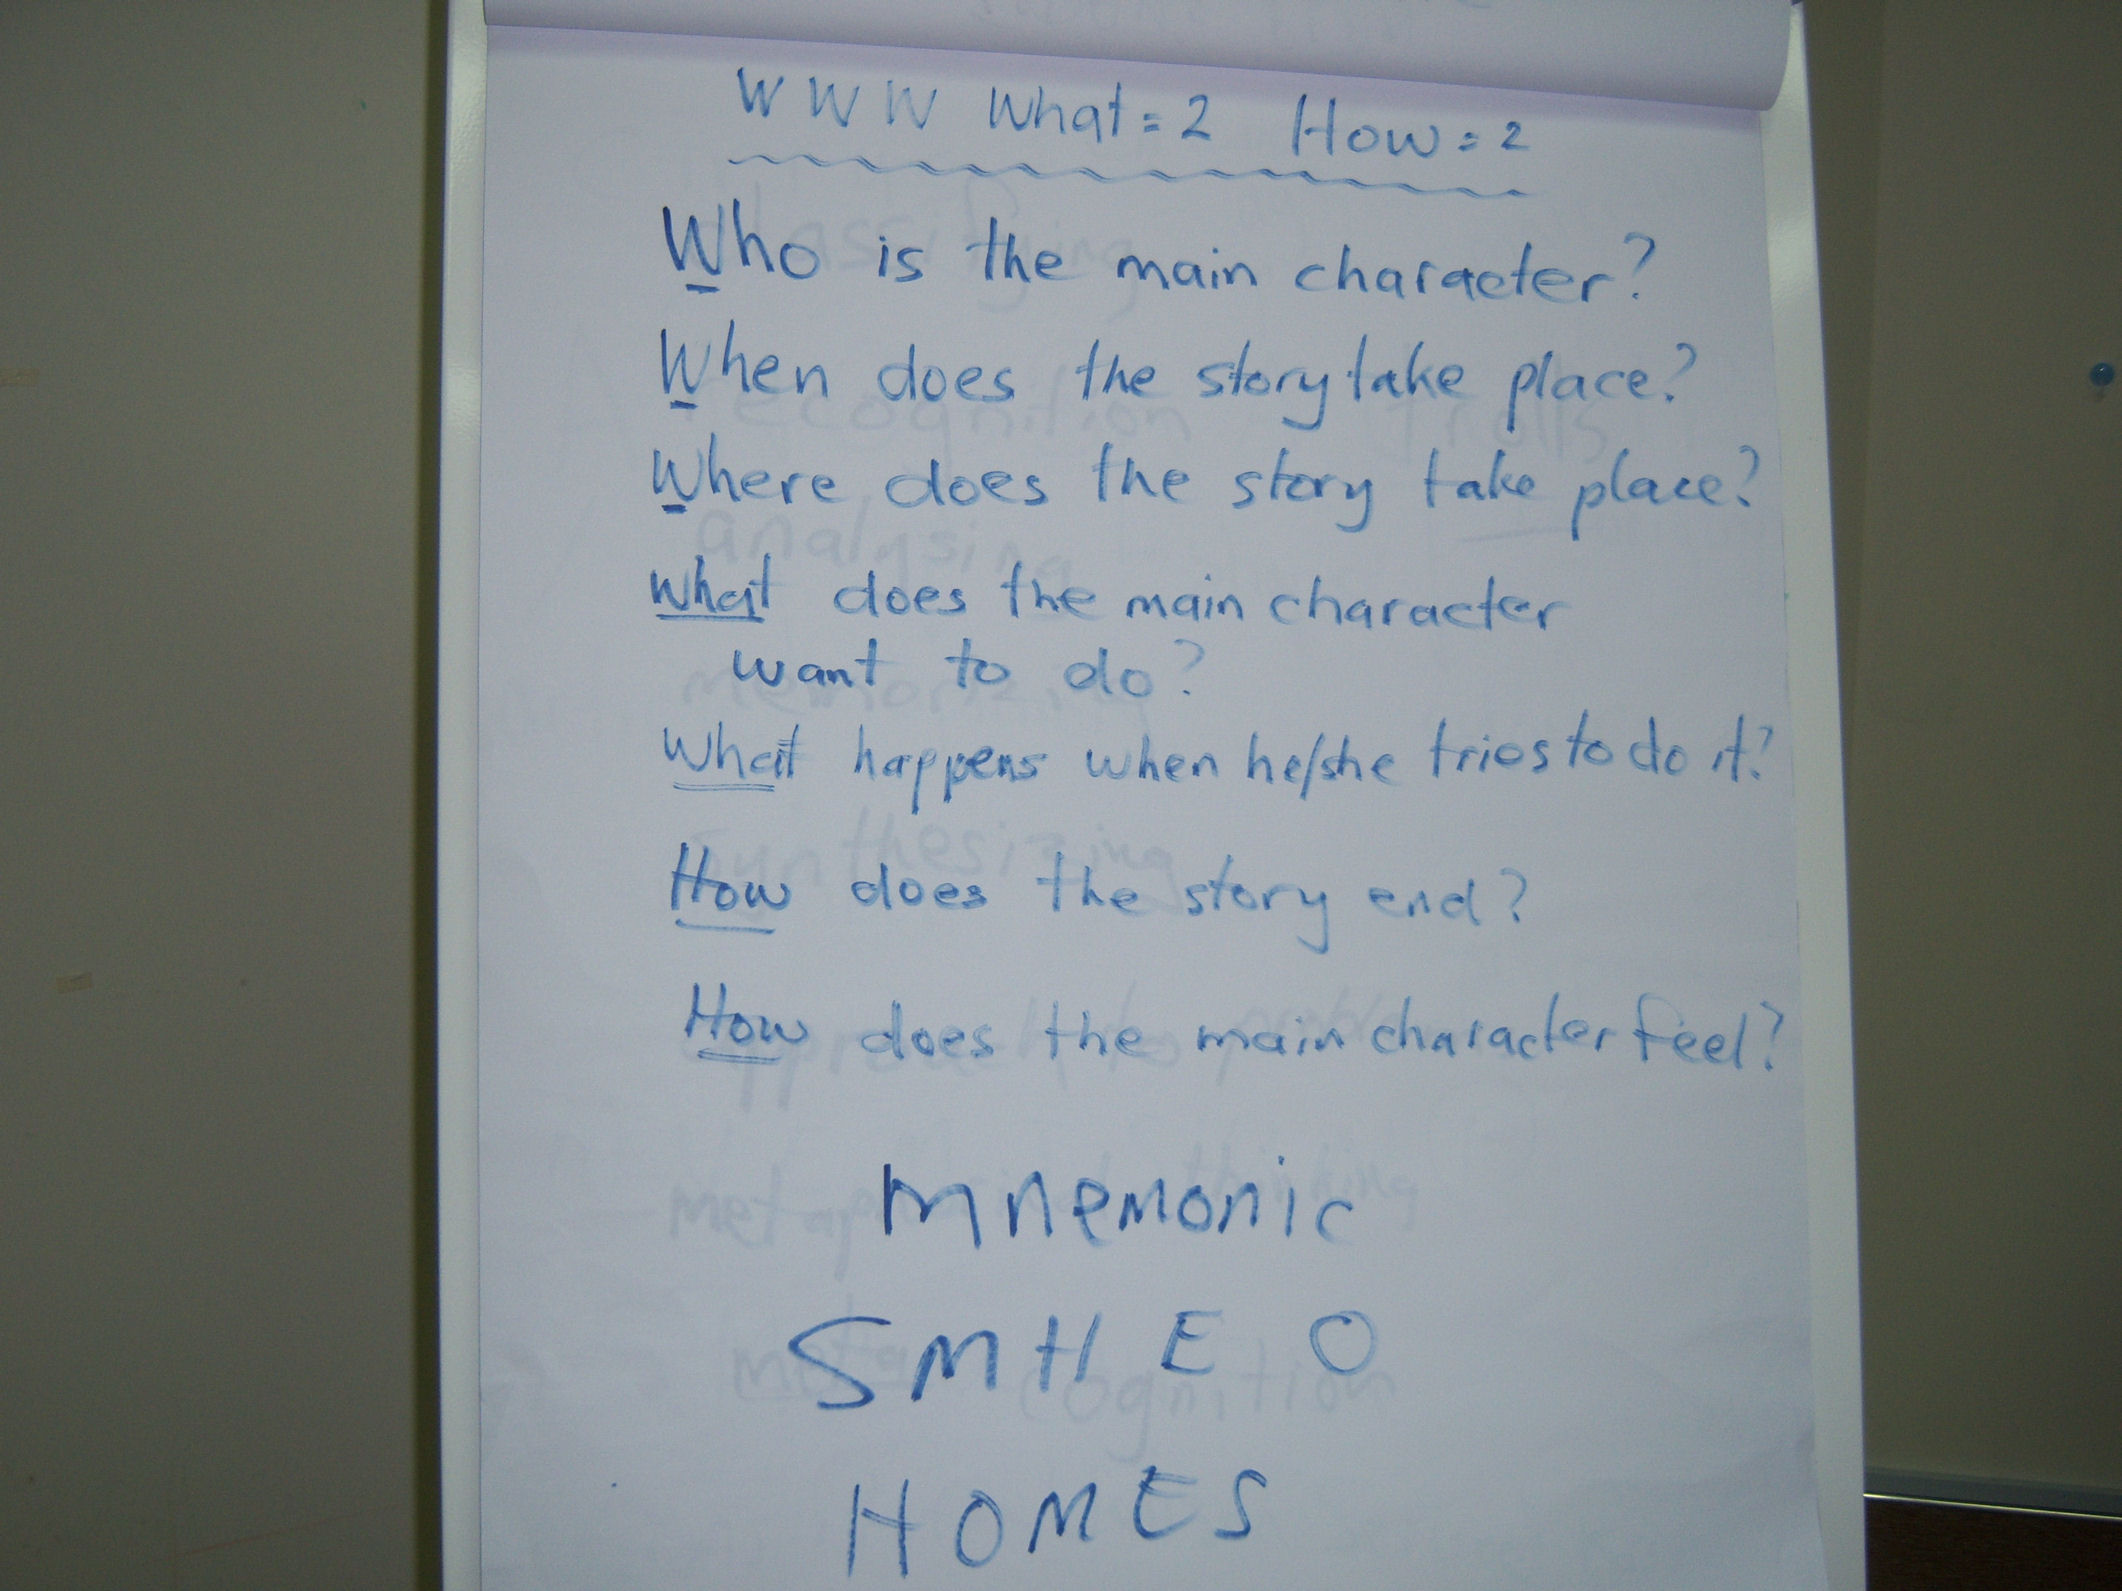 W W W What = 2 How = 2
Who is the main character?
When does the story take place?
Where does the story take place?
What does the main character
want to do?
What happens when he/she tries to do it?
How does the story end?
How does the main character feel?
mnemonic
S M H E O
H O M E S
classifying
recognition trolls
analysing
memorizing
synthesizing
metaphorical thinking
meta cognition